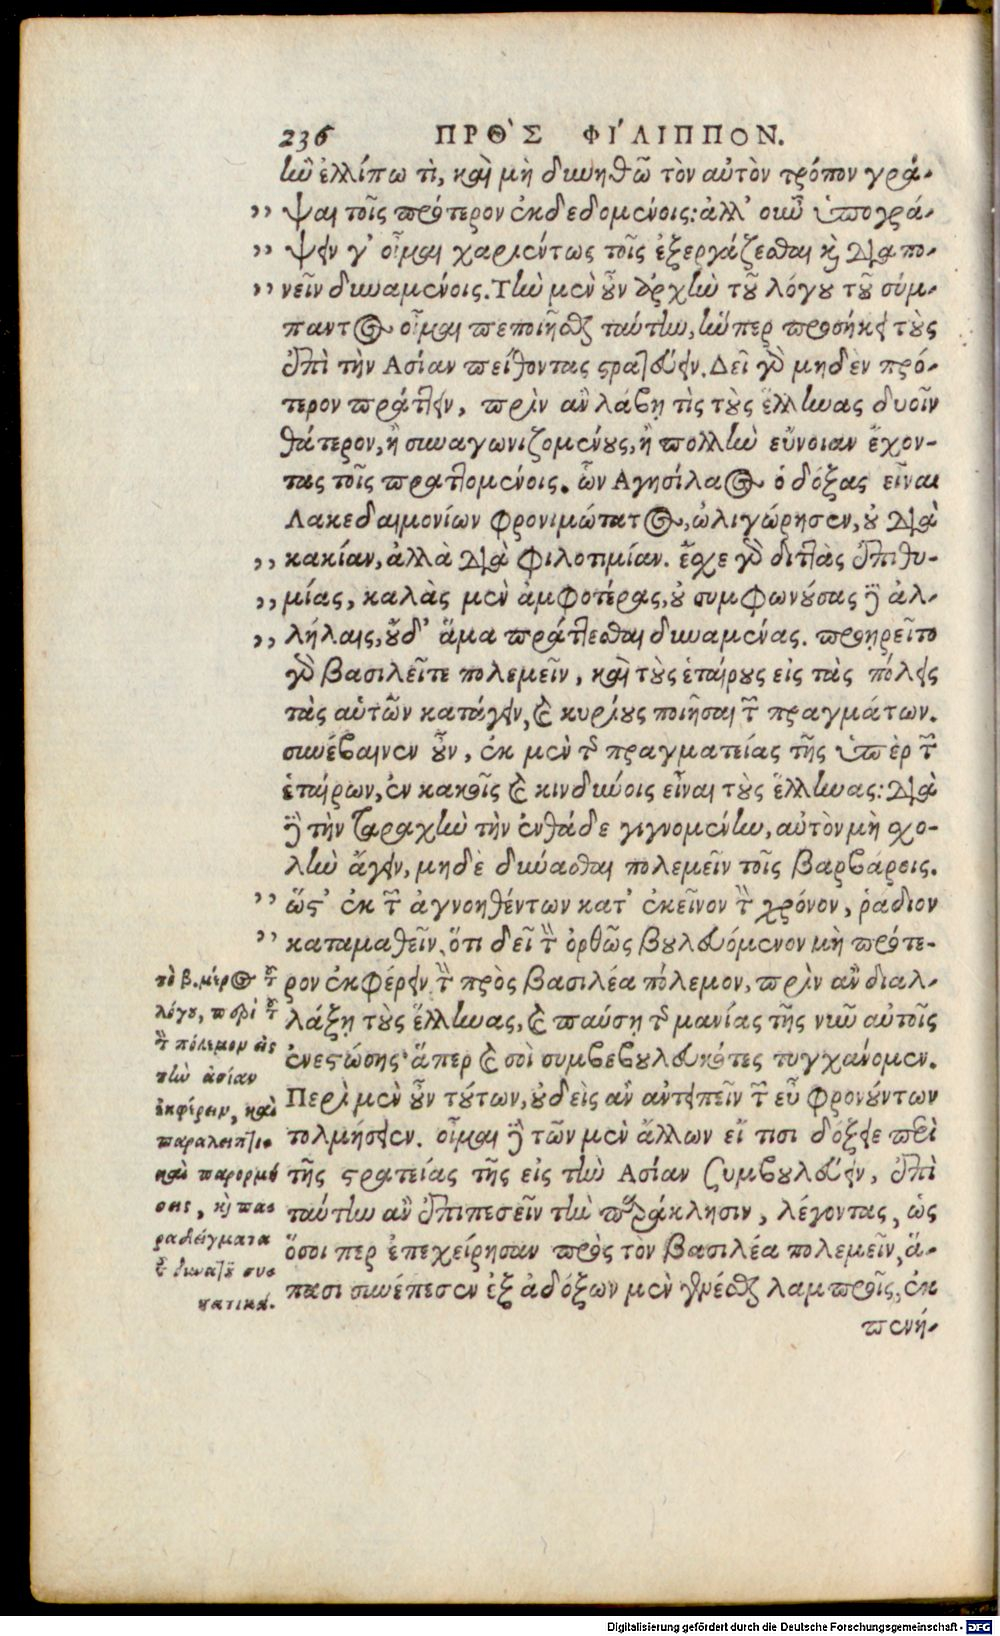 236 ΠΡΟ᾽Σ ΦΙ´ΛΙΠΠΟΝ.
ἢν ἐλλίπω τὶ, καὶ μὴ δυνηθῶ τὸν αὐτὸν τρόπον γρά-
ψαι τοῖς πρότερον ἐκδεδομένοις: ἀλλ' οὖν ὑπογρά-
ψειν γ' οἶμαι χαριέντως τοῖς ἐξεργάζεσθαι καὶ διαπο-
νεῖν δυναμένοις. Τὴν μὲν οὖν ἀρχὴν τοῦ λόγου τοῦ σύμ-
παντος οἶμαι πεποιῆσθαι ταύτην, ἥνπερ προσήκει τοὺς
ἐπὶ τὴν Ασίαν πείθοντας στρατεύειν. Δεῖ γὰρ μηδὲν πρό-
τερον πράττειν, πρὶν ἂν λάβῃ τὶς τοὺς ἕλληνας δυοῖν
θάτερον, ἢ συναγωνιζομένους, ἢ πολλὴν εὔνοιαν ἔχον-
τας τοῖς πραττομένοις. ὧν Αγησίλαος ὁ δόξας εἶναι
Λακεδαιμονίων φρονιμώτατος, ὠλιγώρησεν, οὐ διὰ
κακίαν, ἀλλὰ διὰ φιλοτιμίαν. ἔσχε γὰρ διττὰς ἐπιθυ-
μίας, καλὰς μὲν ἀμφοτέρας, οὐ συμφωνούσας δὲ ἀλ-
λήλαις, οὐδ' ἅμα πράττεσθαι δυναμένας. προῃρεῖτο
γὰρ βασιλεῖτε πολεμεῖν, καὶ τοὺς ἑταίρους εἰς τὰς πόλεις
τὰς αὑτῶν κατάγειν, καὶ κυρίους ποιῆσαι τῶν πραγμάτων.
συνέβαινεν οὖν, ἐκ μὲν τῆς πραγματείας τῆς ὑπὲρ τῶν
ἑταίρων, ἐν κακοῖς καὶ κινδύνοις εἶναι τοὺς ἕλληνας: διὰ
δὲ τὴν ταραχὴν τὴν ἐνθάδε γιγνομένην, αὐτὸν μὴ σχο-
λὴν ἄγειν, μηδὲ δύνασθαι πολεμεῖν τοῖς βαρβάροις.
ὥστ' ἐκ τῶν ἀγνοηθέντων κατ' ἐκεῖνον τὸν χρόνον, ῥάδιον
καταμαθεῖν, ὅτι δεῖ τὸν ὀρθῶς βουλευόμενον μὴ πρότε-
ρον ἐκφέρειν τὸν πρὸς βασιλέα πόλεμον, πρὶν ἂν διαλ-
λάξῃ τοὺς ἕλληνας, καὶ παύσῃ τῆς μανίας τῆς νῦν αὐτοῖς
ἐνεστώσης· ἅπερ καὶ σοὶ συμβεβουλευκότες τυγχάνομεν.
Περὶ μὲν οὖν τούτων, οὐδεὶς ἂν ἀντειπεῖν τῶν εὖ φρονούντων
τολμήσειεν. οἶμαι δὲ τῶν μὲν ἄλλων εἴ τισι δόξειε περὶ
τῆς στρατείας τῆς εἰς τὴν Ασίαν συμβουλεύειν, ἐπὶ
ταύτην ἂν ἐπιπεσεῖν τὴν παράκλησιν, λέγοντας, ὡς
ὅσοι περ ἐπεχείρησαν πρὸς τὸν βασιλέα πολεμεῖν, ἅ-
πασι συνέπεσεν ἐξ ἀδόξων μὲν γενέσθαι λαμπροῖς, ἐκ
πενή-
τὸ β. μέρος τοῦ
λόγου, περὶ τοῦ
τὸν πόλεμον εἰς
τὴν ἀσίαν
ἐκφέρειν, καὶ
καὶ παρορμή
σεις, καὶ πα-
ραδείγματα